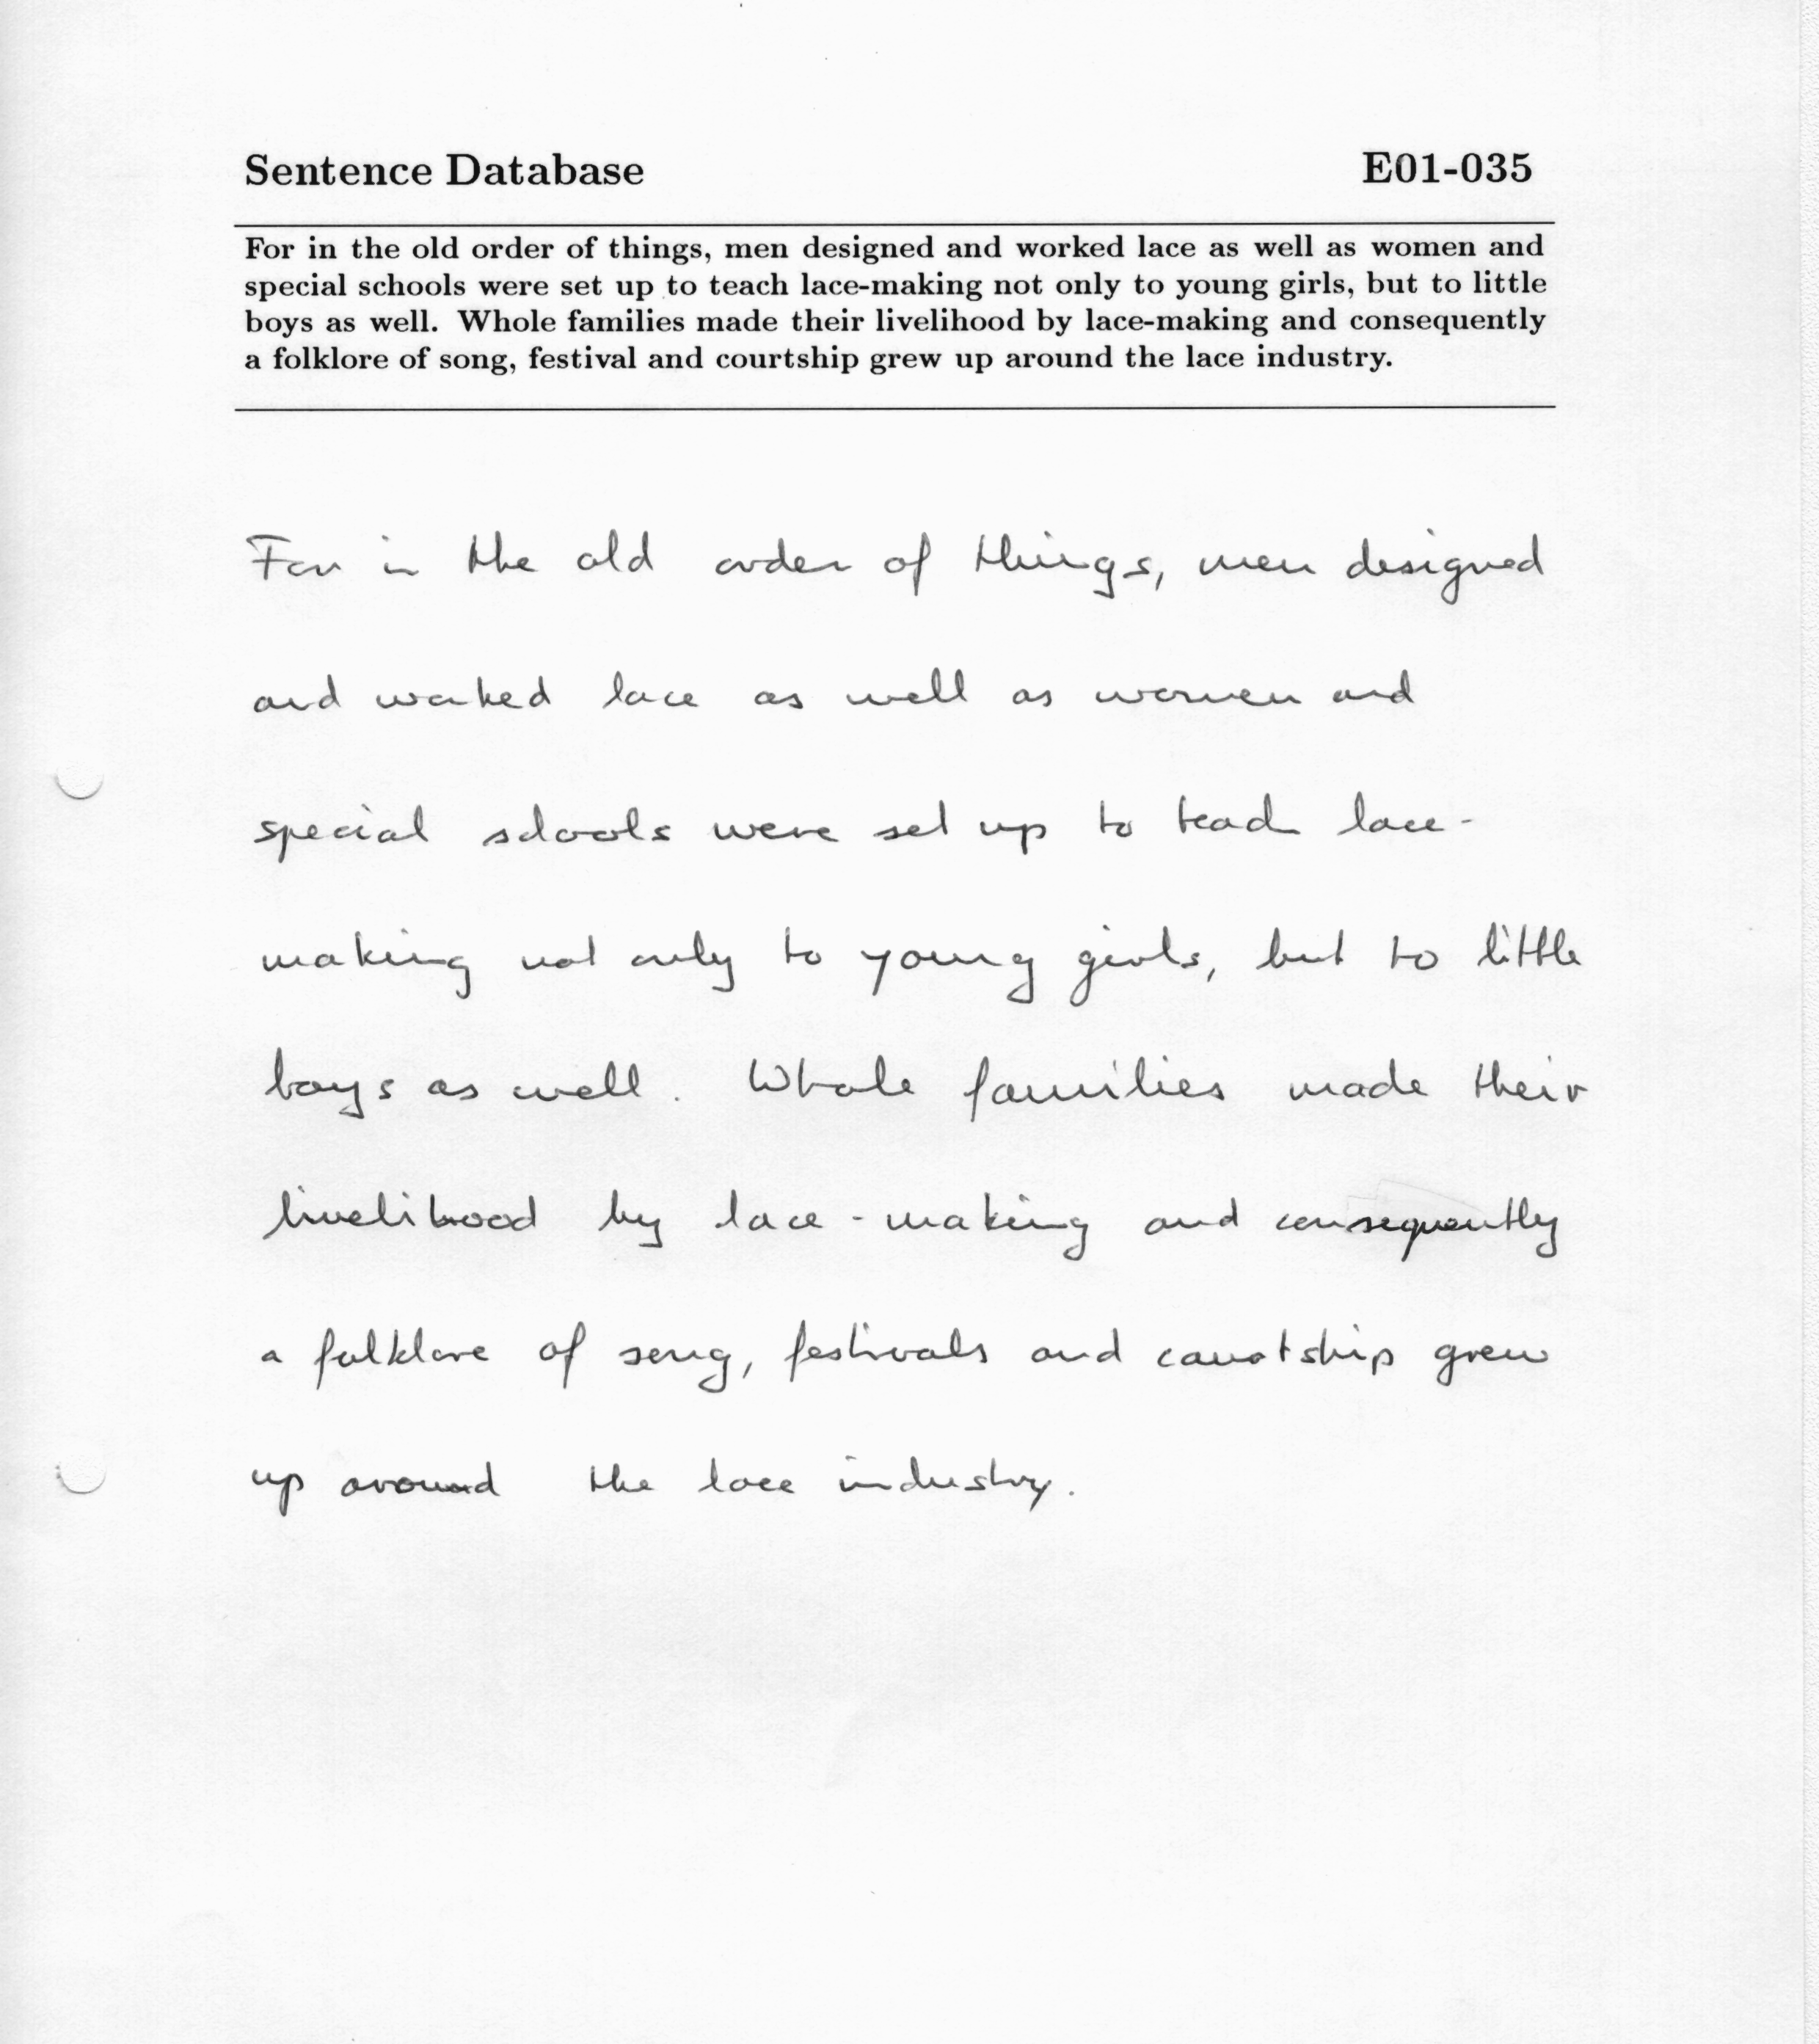 Sentence Database E01-035
For in the old order of things, men designed and worked lace as well as women and
special schools were set up to teach lace-making not only to young girls, but to little
boys as well. Whole families made their livelihood by lace-making and consequently
a folklore of song, festival and courtship grew up around the lace industry.
For in the old order of things, men designed
and worked lace as well as women and
special schools were set up to teach lace-
making not only to young girls, but to little
boys as well. Whole families made their
livelihood by lace-making and consequently
a folklore of song, festivals and courtship grew
up around the lace industry.